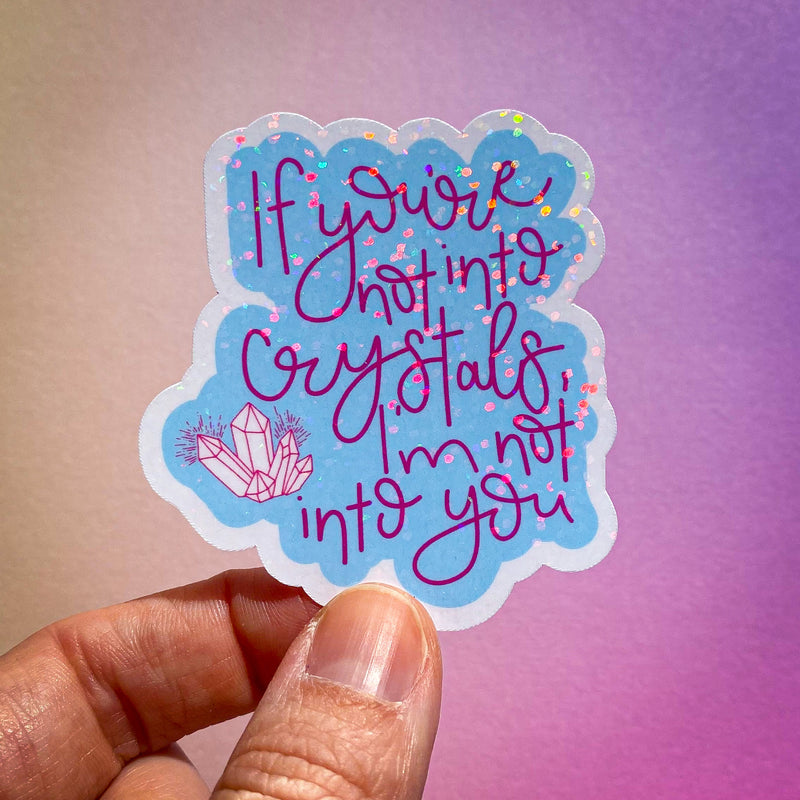 If you're
not into
crystals,
I'm not
into you